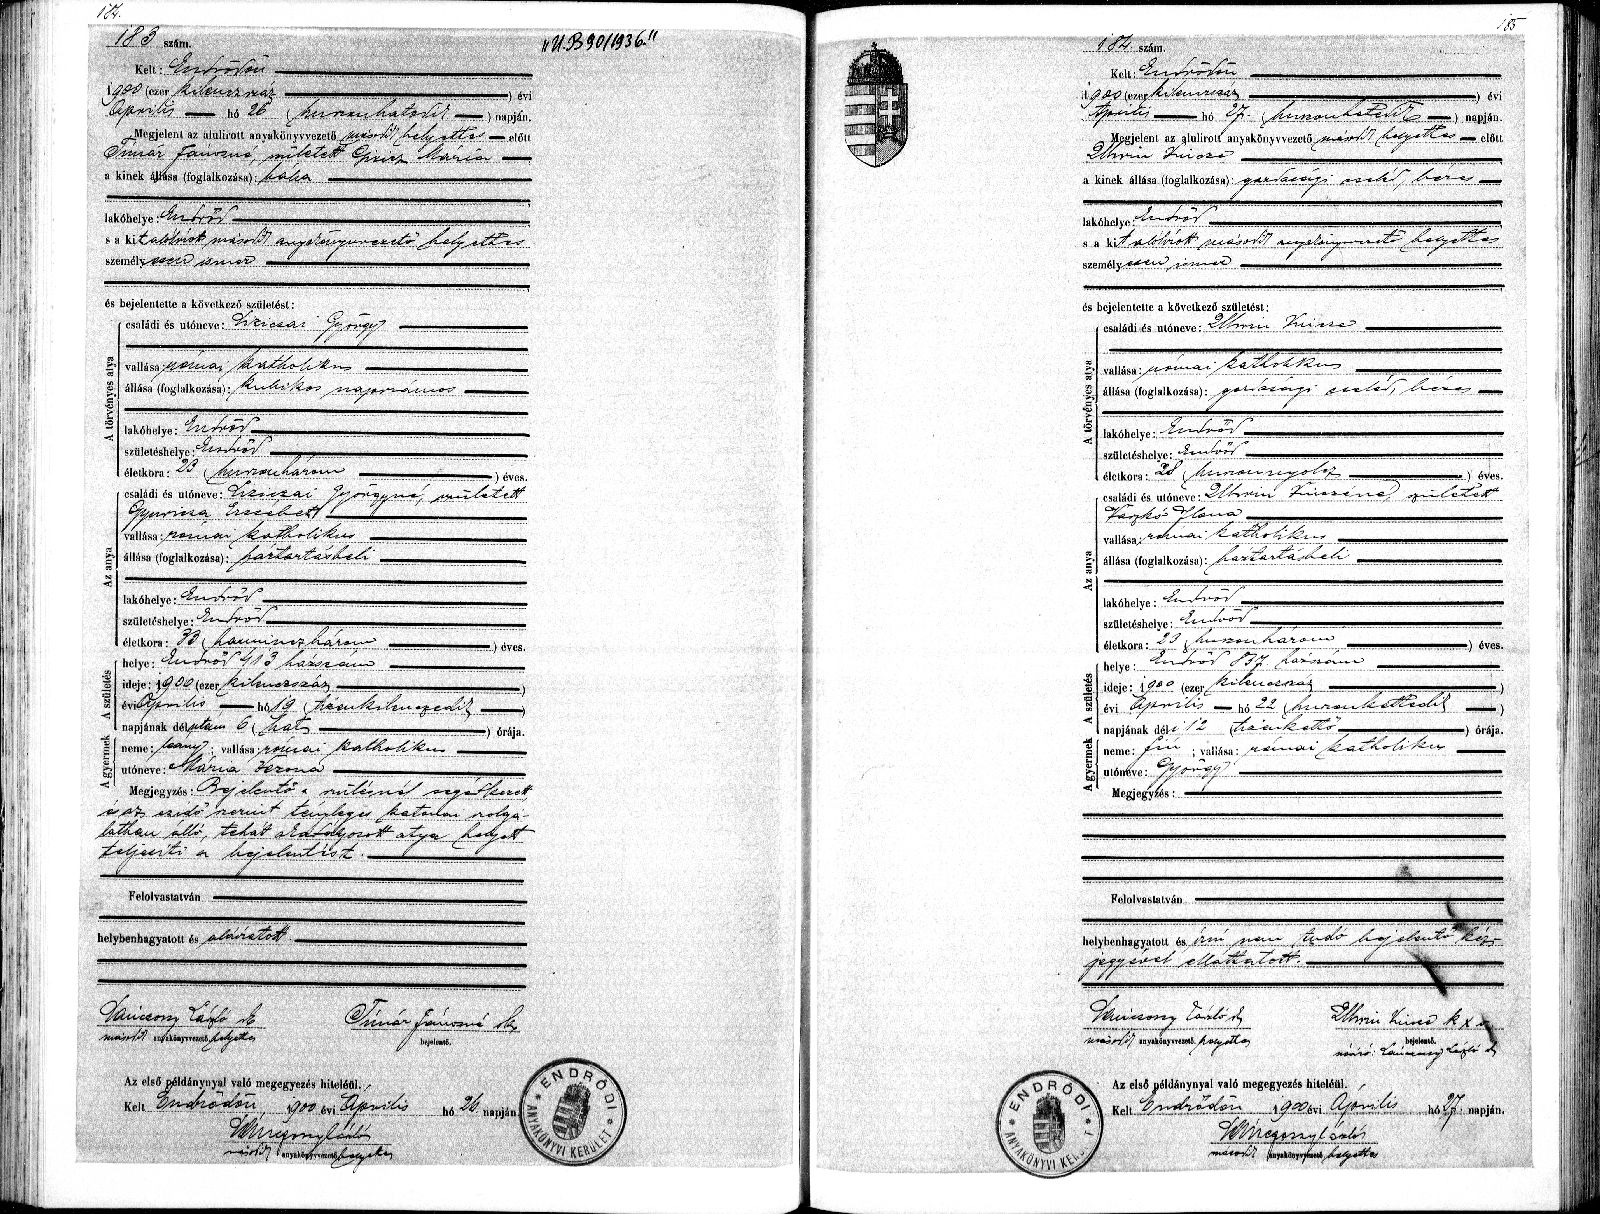 184.
183 szám.
"U.B 90/1936."
Kelt: Endrődön
1900 (ezer kilenczszáz ) évi
Április hó 26 (huszonhatodik ) napján.
Megjelent az alulirott anyakönyvvezető másodk helyettes előtt
Timár Jánosné, született Mária
a kinek állása (foglalkozása): bába
lakóhelye: Endrőd
s a kit alólirott másodk anyakönyvvezető helyettes
személyesen ismer
és bejelentette a következő születést:
A törvényes atya
családi és utóneve: Lizicsai György
vallása: római katholikus
állása (foglalkozása): kubikos napszámos
lakóhelye: Endrőd
születéshelye: Endrőd
életkora: 23 (huszonhárom ) éves.
Az anya
családi és utóneve: Lizicsai Györgyné, született
Gyuricza Erzsébet
vallása: római katholikus
állása (foglalkozása): háztartásbeli
lakóhelye: Endrőd
születéshelye: Endrőd
életkora: 33 (harminczhárom ) éves.
A születés
helye: Endrőd 413 házszám
ideje: 1900 (ezer kilenczszáz )
évi Április hó 19 (tizenkilenczedik )
napjának délután 6 (hat ) órája.
A gyermek
neme: leány; vallása: római katholikus
utóneve: Mária Verona
Megjegyzés: Bejelentő a szülésnél segédkezett
és az ezidő szerint tényleges katonai szolgá-
latban álló, tehát akadályozott atya helyett
teljesiti a bejelentést.
Felolvastatván
helybenhagyatott és aláiratott.
László sk Timár Jánosné sk
másodk anyakönyvvezető. helyettes bejelentő.
Az első példánynyal való megegyezés hiteléül.
Kelt Endrődön, 1900 évi Április hó 26 napján.
László
másodk anyakönyvvezető helyettes
ENDRŐDI ANYAKÖNYVI KERÜLET
185
184 szám.
Kelt: Endrődön
1900 (ezer kilenczszáz ) évi
Április hó 27. (huszonhetedik ) napján.
Megjelent az alulirott anyakönyvvezető másodk helyettes előtt
Vincze
a kinek állása (foglalkozása): gazdasági cseléd, béres
lakóhelye: Endrőd
s a kit alólirott másodk anyakönyvvezető helyettes
személyesen ismer
és bejelentette a következő születést:
A törvényes atya
családi és utóneve: Vincze
vallása: római katholikus
állása (foglalkozása): gazdasági cseléd, béres
lakóhelye: Endrőd
születéshelye: Endrőd
életkora: 28 (huszonnyolcz ) éves.
Az anya
családi és utóneve: Vinczéné, született
Ilona
vallása: római katholikus
állása (foglalkozása): háztartásbeli
lakóhelye: Endrőd
születéshelye: Endrőd
életkora: 23 (huszonhárom ) éves.
A születés
helye: Endrőd házszám
ideje: 1900 (ezer kilenczszáz )
évi Április hó 22 (huszonkettedik )
napjának déli 12 (tizenkettő ) órája.
A gyermek
neme: fiu; vallása: római katholikus
utóneve: György
Megjegyzés:
Felolvastatván
helybenhagyatott és irni nem tudó bejelentő kéz-
jegyével elláttatott.
László sk Vincze k x v
másodk anyakönyvvezető. helyettes bejelentő.
László sk
Az első példánynyal való megegyezés hiteléül.
Kelt Endrődön 1900 évi Április hó 27. napján.
László
másodk anyakönyvvezető helyettes
ENDRŐDI ANYAKÖNYVI